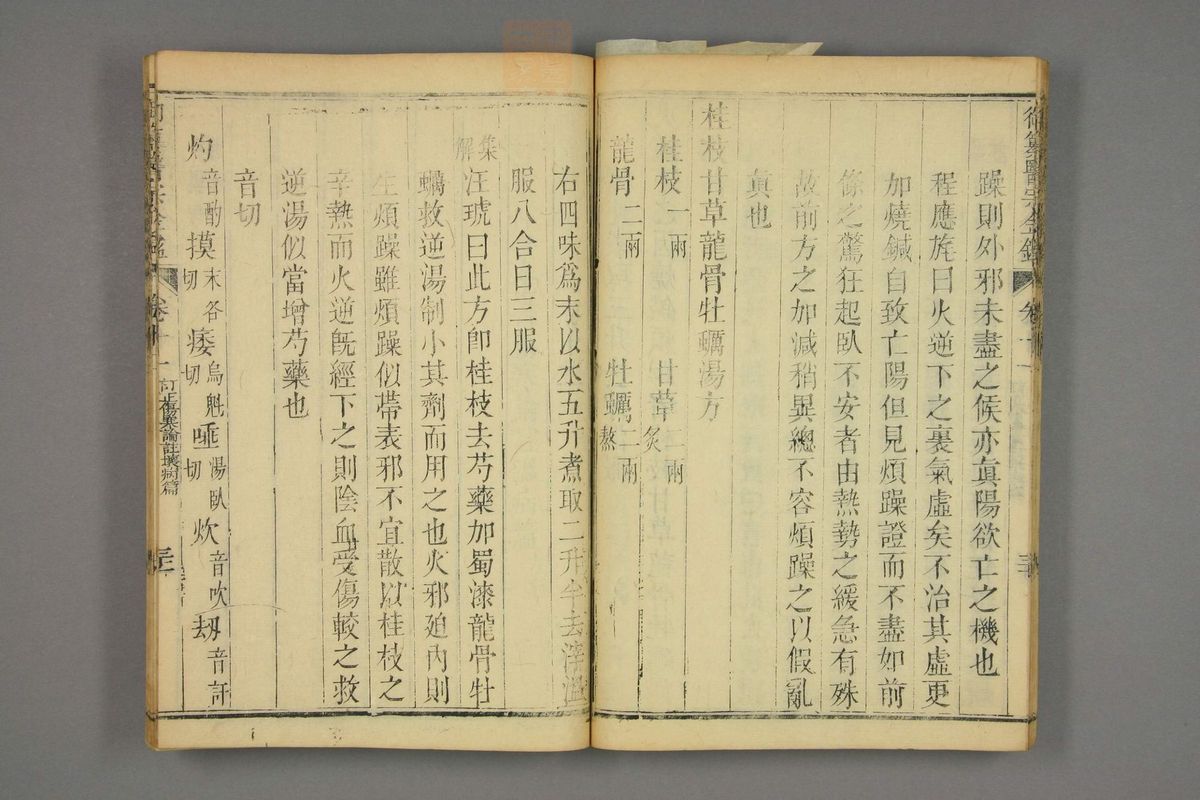 御纂醫宗金鑑 卷十一
躁則外邪未盡之候亦眞陽欲亡之機也
程應旄曰火逆下之裏氣虛矣不治其虛更
加燒鍼自致亡陽但見煩躁證而不盡如前
條之驚狂起臥不安者由熱勢之緩急有殊
故前方之加減稍異總不容煩躁之以假亂
眞也
桂枝甘草龍骨牡蠣湯方
桂枝一兩 甘草炙二兩
龍骨二兩 牡蠣熬二兩
右四味爲末以水五升煮取二升半去滓溫
服八合日三服
集解汪琥曰此方卽桂枝去芍藥加蜀漆龍骨牡
蠣救逆湯制小其劑而用之也火邪廹內則
生煩躁雖煩躁似帶表邪不宜散以桂枝之
辛熱而火逆旣經下之則陰血受傷較之救
逆湯似當增芍藥也
音切
灼音酌 摸末各切 痿烏魁切 唾湯臥切 炊音吹 刼音訐
卷十一 訂正傷寒論註壞病篇